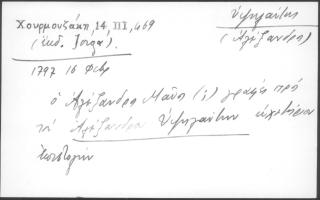 Χουρμουζάκη, 14 III, 469
(ἐκδ. Jorga).
Ὑψηλάντης
(Ἀλέξανδρος)
1797 16 Φεβρ
ὁ Ἀλέξανδρος (;) γράφει πρὸ
Ἀλέξανδρον Ὑψηλάντην εὐχετήριον
ἐπιστολήν